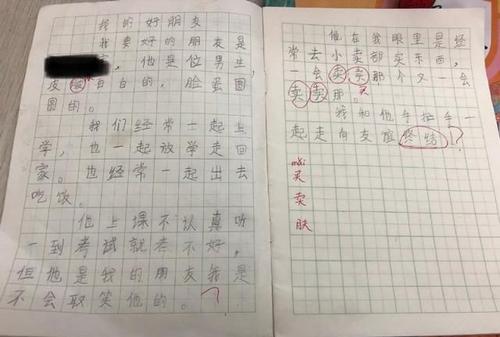 我的好朋友
我要好的朋友是
他是位男生，
皮肤白白的，脸蛋圆
圆的。
我们经常一起上
学，也一起放学走回
家。也经常一起出去
吃饭。
他上课不认真听
一到考试就考不好，
但他是我的朋友我是
不会取笑他的。
他在我眼里是经
常去小卖部买东西，
一会卖卖那个又一会
卖卖那。
买
我和他手拉手一
起走向友谊终结
？
mǎi
买
卖
肤